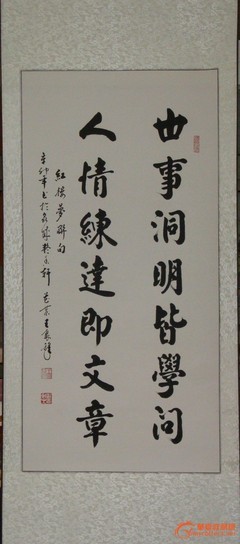 世事洞明皆學問
人情練達即文章
紅樓夢聯句
辛卯年書於